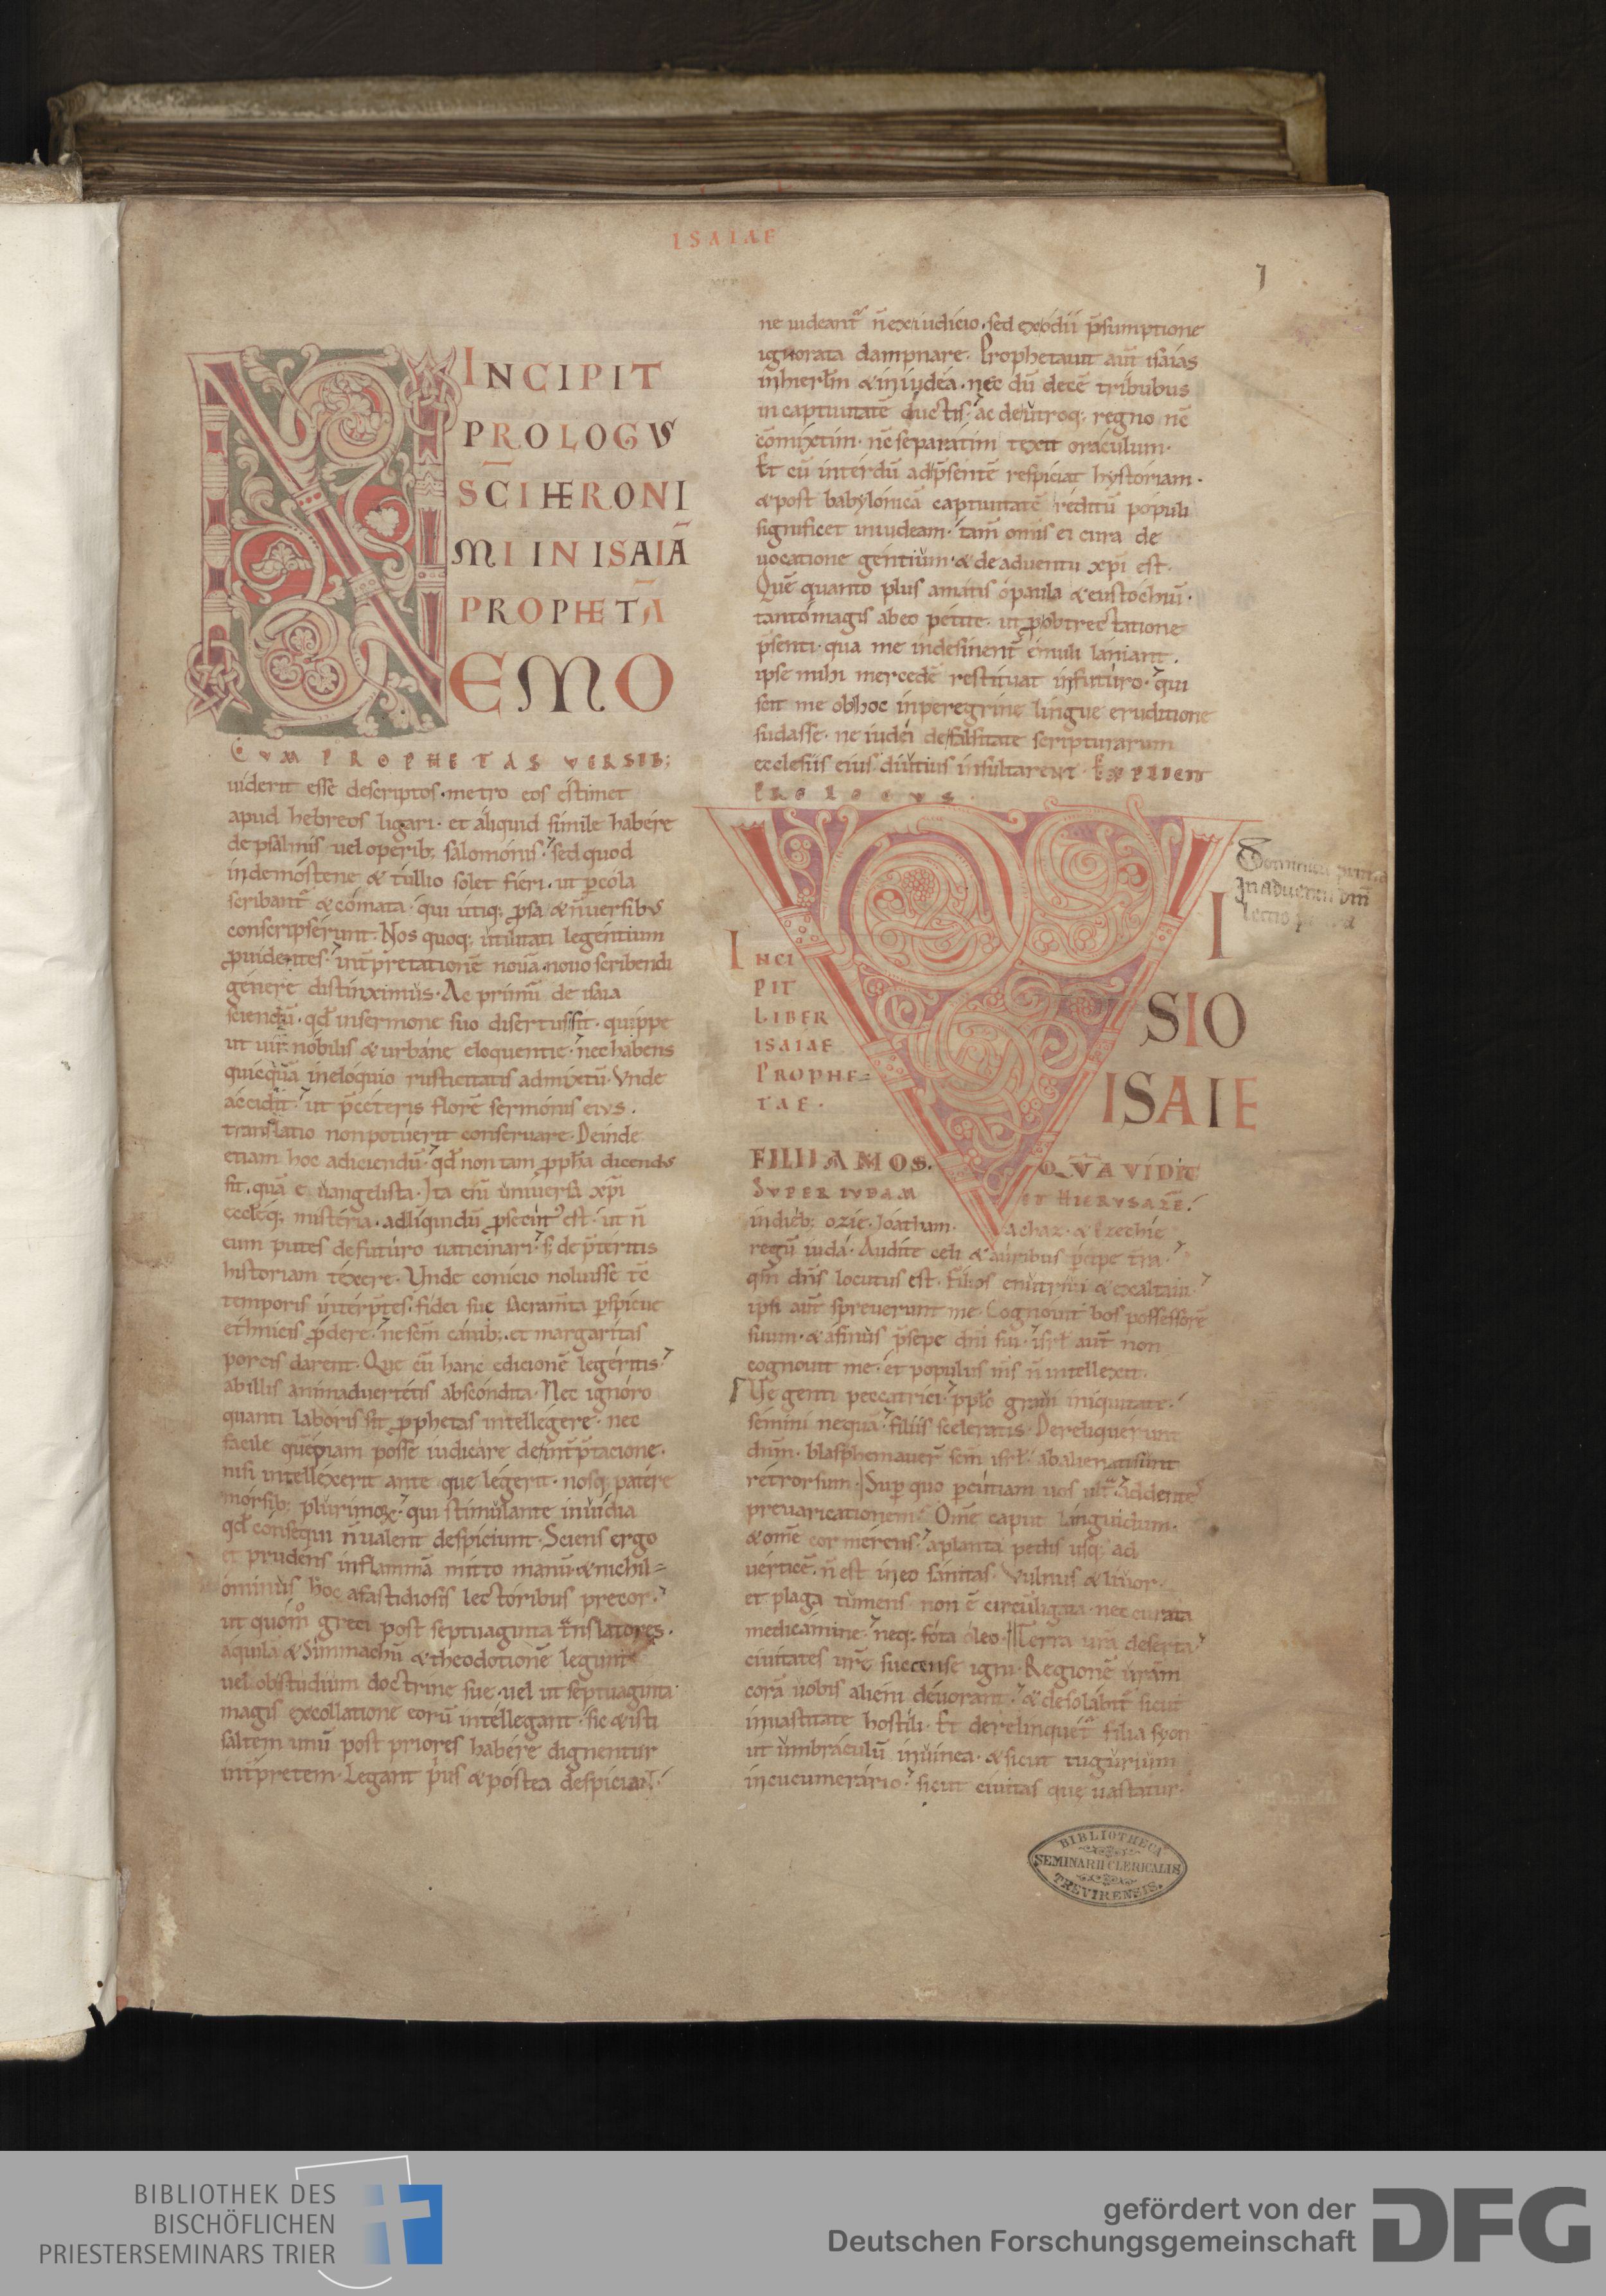 ISAIAE
INCIPIT
PROLOGVS
S̄CI HIERONI
MI IN ISAIĀ
PROPHETĀ
NEMO
CVM PROPHETAS VERSIB;
uiderit esse descriptos. metro eos estimet
apud hebreos ligari. et aliquid simile habere
de psalmis uel operib; salomonis. sed quod
in demostene & tullio solet fieri. ut p cola
scribant̄ & comata. qui utiq; psa & n̄ uersibus
conscripserunt. Nos quoq; utilitati legentium
puidentes. int̄pretationē nouā nouo scribendi
genere distinximus. Ac primū de isaia
sciendū. qđ in sermone suo disertus sit. quippe
ut uir nobilis & urbane eloquentie. nec habens
quicquā in eloquio rusticitatis admixtū. Vnde
accidit. ut p̄ceteris florē sermonis eius.
translatio non potuerit conseruare. Deinde
etiam hoc adiciendū. qđ non tam ppha dicendus
sit. quā euangelista. Ita enī uniuersa xp̄i
eccleq; misteria. ad liquidū psecut' est. ut n̄
eum putes de futuro uaticinari. s; de p̄teritis
historiam texere. Unde conicio noluisse tē
temporis int̄erp̄tes. fidei sue sacram̄ta pspicue
ethnicis pdere. ne sc̄m canib;. et margaritas
porcis darent. Que cū hanc edicionē legeritis.
ab illis animaduertētis abscondita. Nec ignoro
quanti laboris sit pphetas intellegere. nec
facile quēpiam posse iudicare de int̄p̄tacione.
nisi intellexerit ante que legerit. nosq; patere
morsib; plurimoꝝ. qui stimulante inuidia
qđ consequi n̄ ualent despiciunt. Sciens ergo
et prudens in flammā mitto manū. & nichil=
ominus hoc a fastidiosis lectoribus precor.
ut quom̊ greci post septuaginta t̄nslatores.
aquilā & Simmachū & theodotionē legunt
uel ob studium doctrine sue. uel ut septuaginta
magis ex collatione eorū intellegant. sic & isti
saltem unū post priores habere dignentur
int̄pretem. Legant pus & postea despiciant.
ne uideant̄ n̄ ex iudicio. sed ex odii p̄sumptione
ignorata dampnare. Prophetauit aut̄ isaias
in hierlm̄ & in iudea. nec dū decē tribubus
in captiuitatē ductis. ac de utroq; regno nē
cōmixtim. nē separatim texit oraculum.
Et cū interdū ad p̄sentē respiciat hystoriam.
& post babylonicā captiuitatē reditū populi
significet in iudeam. tam̄ om̄is ei cura de
uocatione gentium. & de aduentu xp̄i est.
Quē quanto plus amatis o paula & eustochiū.
tanto magis ab eo petite. ut p obtrectatione
p̄senti. qua me indesinent̄ emuli laniant.
ipse mihi mercedē restituat in futuro. qui
scit me ob hoc in peregrine lingue eruditione
sudasse. ne iudei de falsitate scripturarum
ecclesiis eius diutius insultarent. EXPLICIT
PROLOGVS.
INCI
PIT
LIBER
ISAIAE
PROPHE=
TAE.
VI
SIO
ISAIE
FILII AMOS. QVA VIDIT
SVPER IVDAM ET HIERVSALĒ.
in dieb; ozie. Joathum. achaz. & Ezechie
regū iuda. Audite celi & auribus pcipe t̄ra.
qm̄ dn̄s locutus est. Filios enutriui & exaltaui.
ipsi aut̄ spreuerunt me. Cognouit bos possessorē
suum. & asinus p̄sepe dn̄i sui. isrl̄ aut̄ non
cognouit me. et populus m̄s n̄ intellexit.
Ve genti peccatrici. pplo graui iniquitate.
semini nequā. filiis sceleratis. Dereliquerunt
dnm̄. blasphemauer̄ sc̄m isrl̄. abalienati sunt
retrorsum. Sup quo pcutiam uos ult̄ addentes
preuaricationem. Om̄e caput languidum.
& om̄e cor merens. a planta pedis usq; ad
uerticē. n̄ est in eo sanitas. Vulnus & liuor.
et plaga tumens. non ē circūligata. nec curata
medicamine. neq; fota oleo. Terra ur̄a deserta
ciuitates ur̄e succense igni. Regionē ur̄am
corā uobis alieni deuorant. & desolabit̄ sicut
in uastitate hostili. Et derelinquet̄ filia syon
ut umbraculū in uinea. & sicut tugurium
in cucumerario. sicut ciuitas que uastatur.
Dominica prima
In aduentu dn̄i
lectio
BIBLIOTHECA
SEMINARII CLERICALIS
TREVIRENSIS.
BIBLIOTHEK DES
BISCHÖFLICHEN
PRIESTERSEMINARS TRIER
gefördert von der
Deutschen Forschungsgemeinschaft
DFG